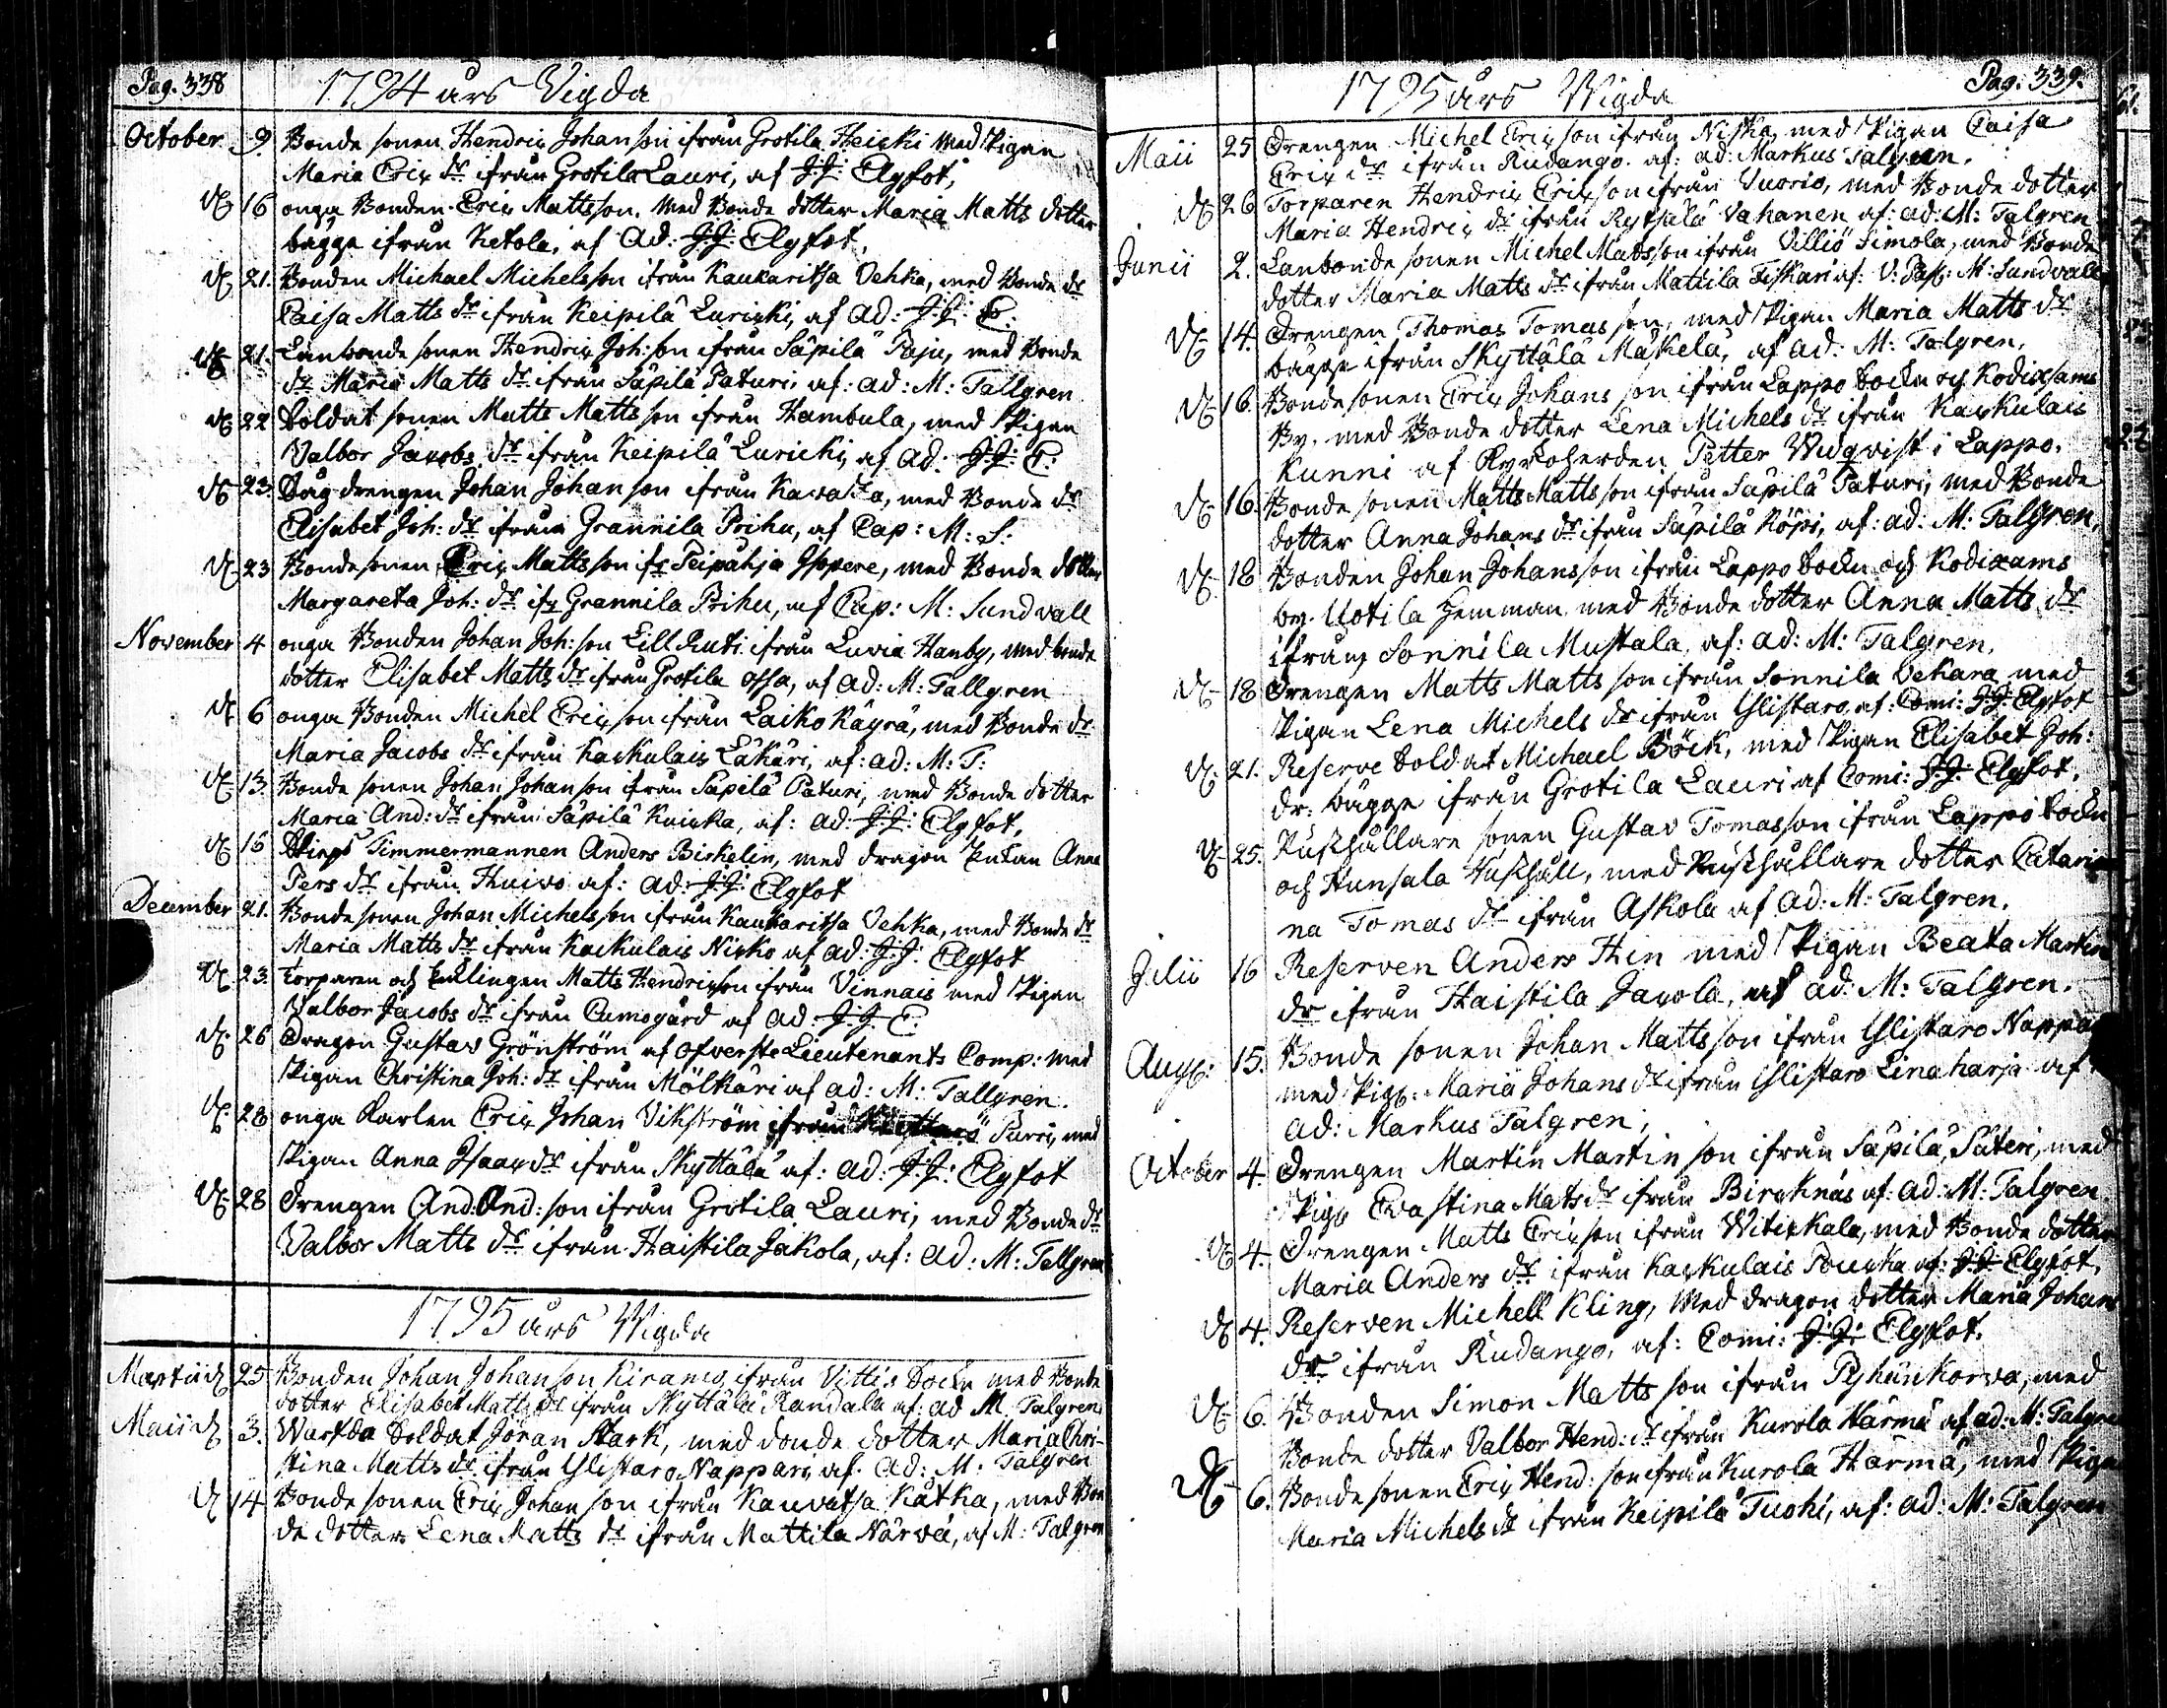 Pag. 338
1794 års Vigda
October 9. Bonde sonen Hendric Johanson ifrån Grotila Heicki med Pigan
Maria Eric dr ifrån Grotila Lauri, af J:J: Elgfot,
d 16 onga Bonden Eric Mattsson, med Bonde dotter Maria Matts dotter
bägge ifrån Ketola, af Ad: J:J: Elgfot,
d 21. Bonden Michael Michelsson ifrån Kaukaritsa Vehka, med Bonde dr
Caisa Matts dr ifrån Keipilä Luricki, af Ad: J:J: E.
d 21. Lanbonde sonen Hendric Joh:son ifrån Säpilä Paju, med Bonde
dr Maria Matts dr ifrån Säpilä Paturi, af: ad: M: Tallgren
d 22 Soldat sonen Matts Mattsson ifrån Hambula, med Pigan
Valbor Jacobs dr ifrån Keipilä Luricki, af Ad: J:J: E:
d 23. Dågdrengen Johan Johanson ifrån, med Bonde dr
Elisabet Joh: dr ifrån Grannila Prihu, af Cap: M: S.
d 23 Bondesonen Eric Mattsson ifr Peipohja Ispere, med Bonde dotter
Margareta Joh: dr ifr Grannila Prihu, af Cap: M: Sundvall
November 4 onga Bonden Johan Joh:son Lill Ruti ifrån Luvia Hanby, med bonde
dotter Elisabet Matts dr ifrån Grotila Ossa, af Ad: M: Tallgren
d 6 onga Bonden Michel Ericson ifrån Laiko Käyrä, med Bonde dr
Maria Jacobs dr ifrån Kackulais Läkäri, af: ad: M: T:
d 13. Bonde sonen Johan Johanson ifrån Säpilä Paturi, med Bonde dotter
Maria And: dr ifrån Säpilä Knicka, af: ad: J:J: Elgfot,
d 16 Skieps Timmermannen Anders Birkelin, med dragon Enkan Anna
Pers dr ifrån Huivo af: ad: J:J: Elgfot
December 21. Bonde sonen Johan Michelsson ifrån Kaukaritsa Vehka, med Bonde dr
Maria Matts dr ifrån Kackulais Nicko af ad: J:J: Elgfot
d 23. Torparen och Enklingen Matts Hendricson ifrån Vinnais med Pigan
Valbor Jacobs dr ifrån Cumogård af ad: J:J: E:
d 26 Dragon Gustav Grönström af Öfverste Lieutenants Comp: med
Pigan Christina Joh: dr ifrån Mölkäri af ad: M: Tallgren.
d 28 onga Karlen Eric Johan Vikström ifrån Purri, med
Pigan Anna Isaac dr ifrån Skyttälä af: ad: J:J: Elgfot
d 28 Drengen And: And: son ifrån Grotila Lauri, med Bonde dr
Valbor Matts dr ifrån Haistila Jakola, af: ad: M: Tallgren
1795 års Vigda
Martii d 25 Bonden Johan Johanson Kiramo ifrån Vittis Sockn med Bonde
dotter Elisabet Matts dr ifrån Skyttälä Randala af: ad M. Talgren
Maii d 3. Soldat Jöran Stark, med bonde dotter Maria Chri-
stina Matts dr ifrån Ylistaro Nappari, af. Ad: M: Talgren
d 14 Bonde sonen Eric Johanson ifrån Kauvatsa Kätkä, med Bon
de dotter Lena Matts dr ifrån Mattila Närvä, af M: Talgren
Pag. 339.
1795 års Wigda
Maii 25 Drengen Michel Ericson ifrån Niska, med Pigan Caisa
Eric dr ifrån Rudango. af: ad: Markus Talgren.
d 26 Torparen Hendric Ericson ifrån Vuorio, med Bonde dotter
Maria Hendric dr ifrån Rytsälä Vahanen af: ad: M: Talgren
Junii 2. Lanbonde sonen Michel Matsson ifrån Villiö Simola, med Bonde
dotter Maria Matts dr ifrån Mattila Fiskari af: V: Past: M: Sundvall
d 14. Drengen Thomas Tomasson, med Pigan Maria Matts dr
bägge ifrån Skyttälä Mäkelä, af ad: M: Talgren,
d 16. Bonde sonen Eric Johansson ifrån Lappo Sockn och Kodixams
By, med Bonde dotter Lena Michels dr ifrån Kackulais
Kunni af Kyrkoherden Petter Widqvist i Lappo.
d 16. Bonde sonen Matts Mattsson ifrån Säpilä Paturi, med Bonde
dotter Anna Johans dr ifrån Säpilä Röpi, af: ad: M: Talgren,
d 18 Bonden Johan Johansson ifrån Lappo Sockn och Kodixams
by. Uotila Hemman med Bonde dotter Anna Matts dr
ifrån Sonnila Mustala, af: ad: M: Talgren,
d 18 Drengen Matts Mattsson ifrån Sonnila Vekara, med
Pigan Lena Michels dr ifrån Ylistaro, af: Comi: J:J: Elgfot
d 21. Reserve Soldat Michael Böck, med Pigan Elisabet Joh:
dr: bägge ifrån Grotila Lauri af Comi: J:J: Elgfot,
d 25. Rusthållare sonen Gustav Tomasson ifrån Lappo Sockn
och Hunsala Rusthåll, med Rusthållare dotter Catari
na Tomas dr ifrån Askola af Ad: M: Talgren.
Julii 16 Reserven Anders Hen med Pigan Beata Martins
dr ifrån Haistila Jacola, af ad: M: Talgren.
Augs: 15. Bonde sonen Johan Mattsson ifrån Ylistaro Nappa
med Pig: Maria Johans dr ifrån Ylistaro Linaharja af
ad: Markus Talgren;
October 4. Drengen Martin Martinson ifrån Säpilä, Säteri, med
Pigs Eva Stina Mats dr ifrån Bircknäs af: ad: M: Talgren
d 4. Drengen Matts Ericson ifrån Witickala, med Bonde dotter
Maria Anders dr ifrån Kackulais Poucka af: J:J: Elgfot,
d 4. Reserven Michell Kling, med dragon dotter Maria Johans
dr ifrån Rudango, af: Comi: J:J: Elgfot.
d 6. Bonden Simon Mattsson ifrån Pyhänkorva, med
Bonde dotter Valbor Hend: dr ifrån Kurola Härmä af ad: M: Talgre
d 6. Bonde sonen Eric Hend: son ifrån Kurola Härmä, med Piga
Maria Michels dr ifrån Keipilä Tuohi, af: ad: M: Talgren